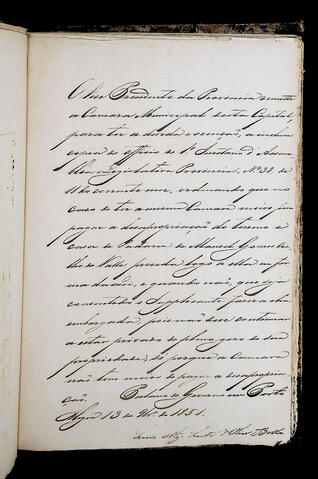 O Snr Presidente da Provincia remette
a Camara Municipal desta Capital,
para ter a devida execução, a inclusa
copia do officio do 1º Secretario d'Assem
blea Legislativa Provincial, Nº 32, de
11 do corrente mez, ordenando que no
caso de ter a mesma Camara meios de
pagar a desapropriação do terreno e
casa de de Manoel
do Valle proceda logo a ella na for
ma da Lei, e quando não, que seja
consentido o Supplicante fazer a obra
embargada, pois não deve continuar
a estar privado do pleno gozo de sua
propriedade, só porque a Camara
não tem meios de pagar a desapropria
ção. Palacio do Governo em Porto
Alegre 13 de de 1851.
Luis